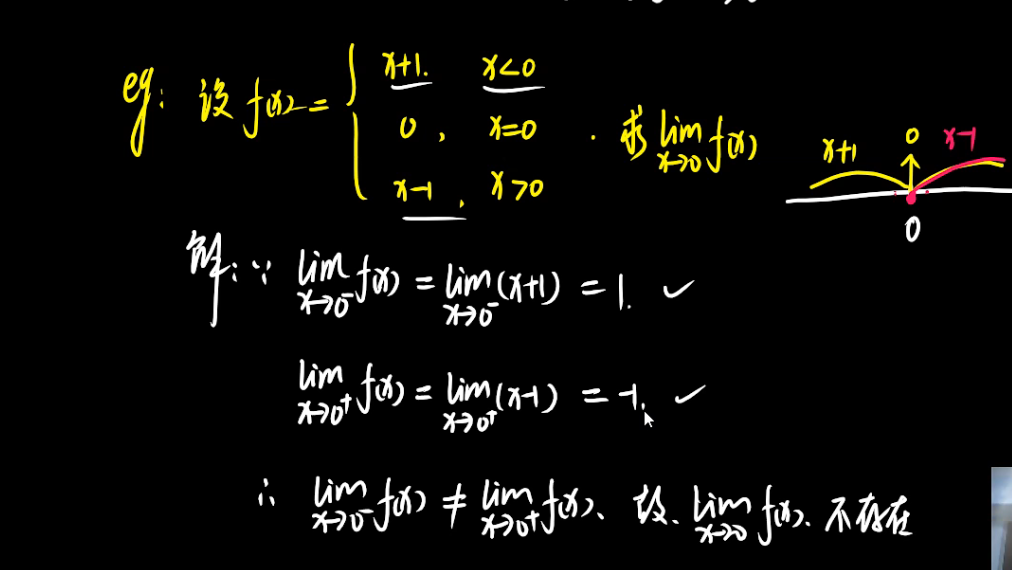 eg: 设 f(x) = { x+1. x<0
0, x=0 . 求 lim x→0 f(x)
x-1, x>0
x+1 0 x-1
0
解: ∵ lim x→0⁻ f(x) = lim x→0⁻ (x+1) = 1. ✓
lim x→0⁺ f(x) = lim x→0⁺ (x-1) = -1. ✓
∴ lim x→0⁻ f(x) ≠ lim x→0⁺ f(x)、故、lim x→0 f(x)、不存在